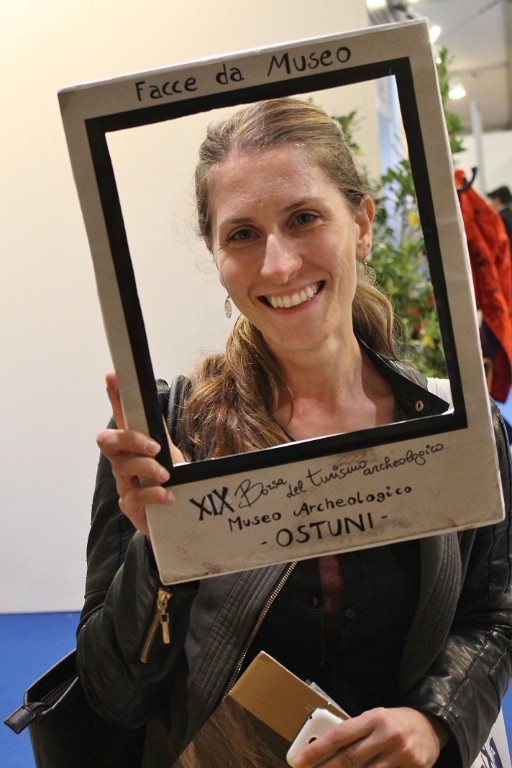 Facce da Museo
XIX Borsa del turismo archeologico
Museo Archeologico
- OSTUNI -